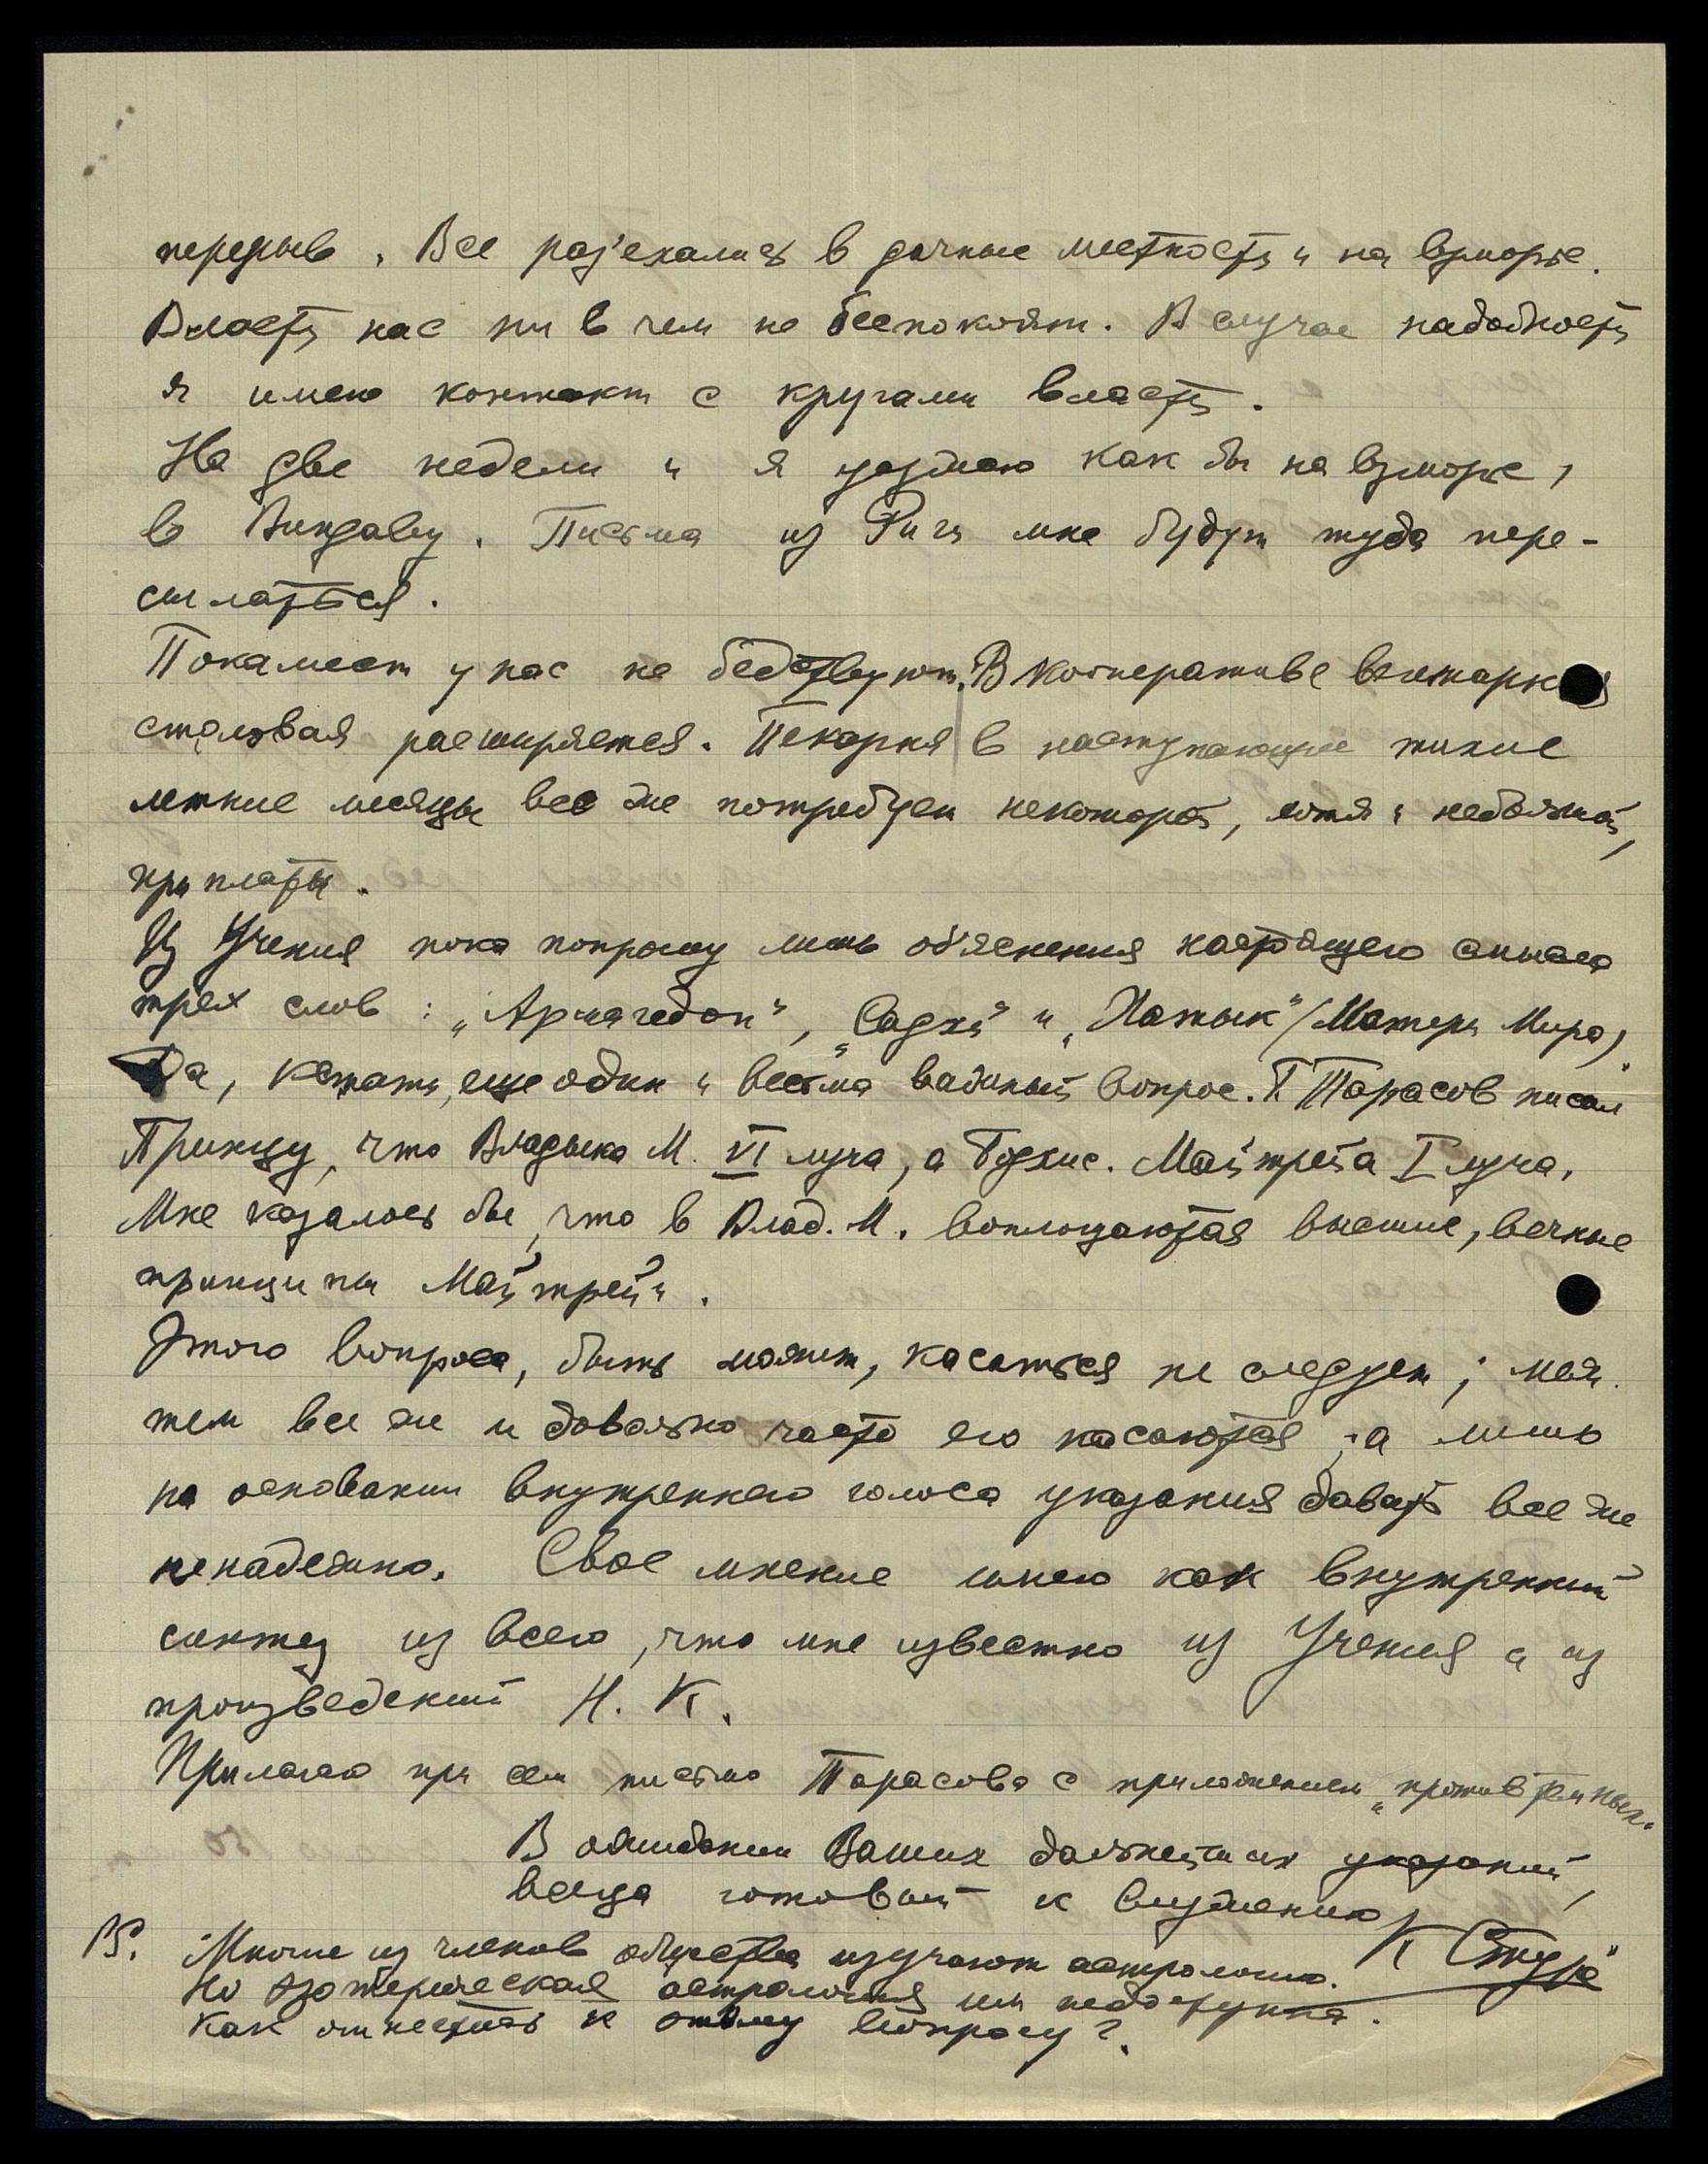 перерыв. Все раз'ехались в дачные местности и на взморье.
Власти нас ни в чем не беспокоят. В случае надобности
я имею контакт с кругами власти.
На две недели и я уезжаю как бы на взморье,
в Писма из Риги мне будут туда пере-
сылаться.
Покамест у нас не бедствуют. В кооперативе вегетарск
столовая расширяется. Пекарня в наступающие тихие
летние месяцы все же потребует некоторой, хотя и небольшой,
приплаты.
Из Учения пока попрошу лишь об'яснения настоящего смысла
трех слов: „Армагедон", „Садхи" и „Натык" /Матерь Мира)
Да, кстати, еще один и весьма важный вопрос. Г. Тарасов писал
Принцу, что Владыка М. VI луча, а Бодхис. Майтрейа I луча.
Мне казалось бы, что в Влад. М. воплощаются высшие, вечные
принципы Майтрейи.
Этого вопроса, быть может, касаться не следует; меж.
тем все же и довольно часто его касаются, а лишь
на основании внутреннего голоса указания давать все же
ненадежно. Свое мнение имею как внутренний
синтез из всего, что мне известно из Учения и из
произведений Н. К.
Прилагаю при сем письмо Тарасова с приложением „против
В ожидании Ваших дальнейших указаний,
всегда готовый к служению К Стурэ
PS. Многие из членов общества изучают астрологию.
Но эзотерическая астрология им недоступна.
Как отнестись к этому вопросу?